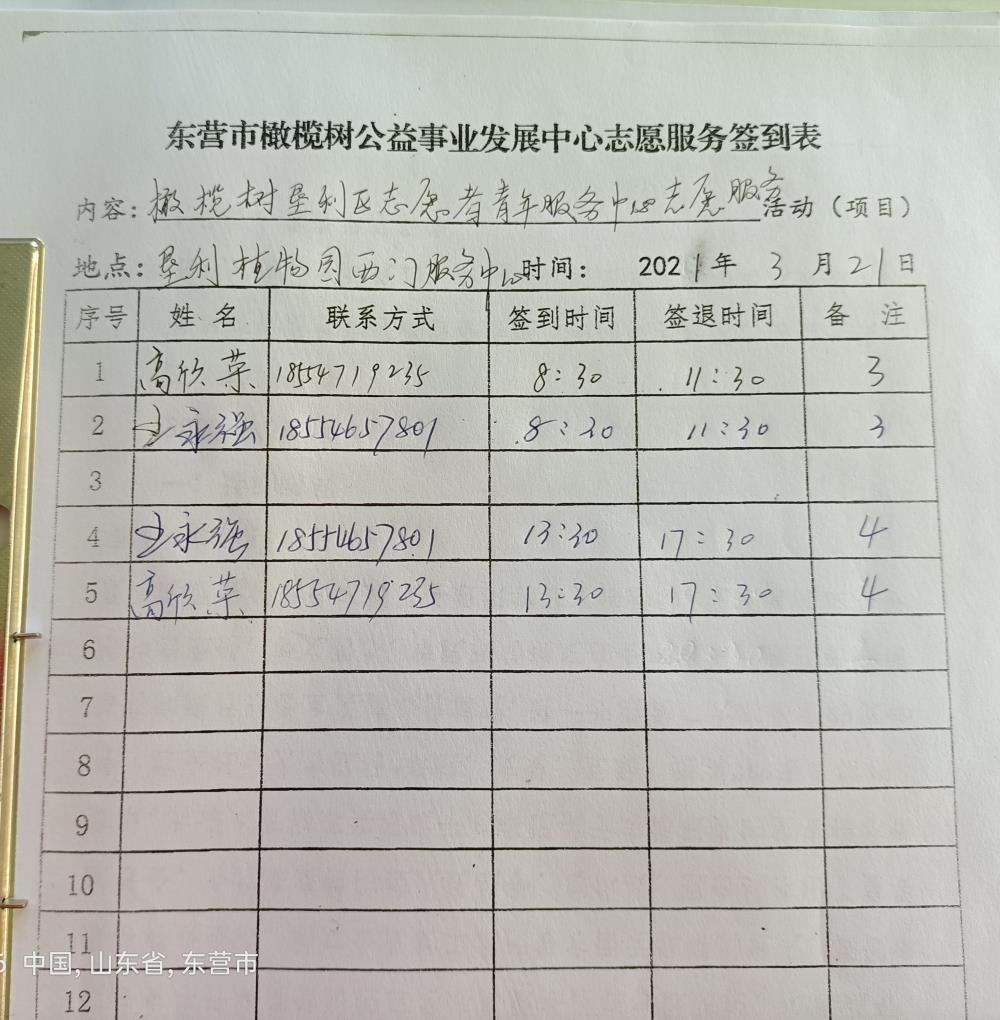 东营市橄榄树公益事业发展中心志愿服务签到表
内容：橄榄树垦利区志愿者青年服务中心志愿服务活动（项目）
地点：垦利植物园西门服务中心时间： 2021年 3 月 21日
序号 姓名 联系方式 签到时间 签退时间 备注
1 高欣荣 18554719235 8:30 11:30 3
2 王永强 18554657801 8:30 11:30 3
3
4 王永强 18554657801 13:30 17:30 4
5 高欣荣 18554719235 13:30 17:30 4
6
7
8
9
10
11
5 中国, 山东省, 东营市
12